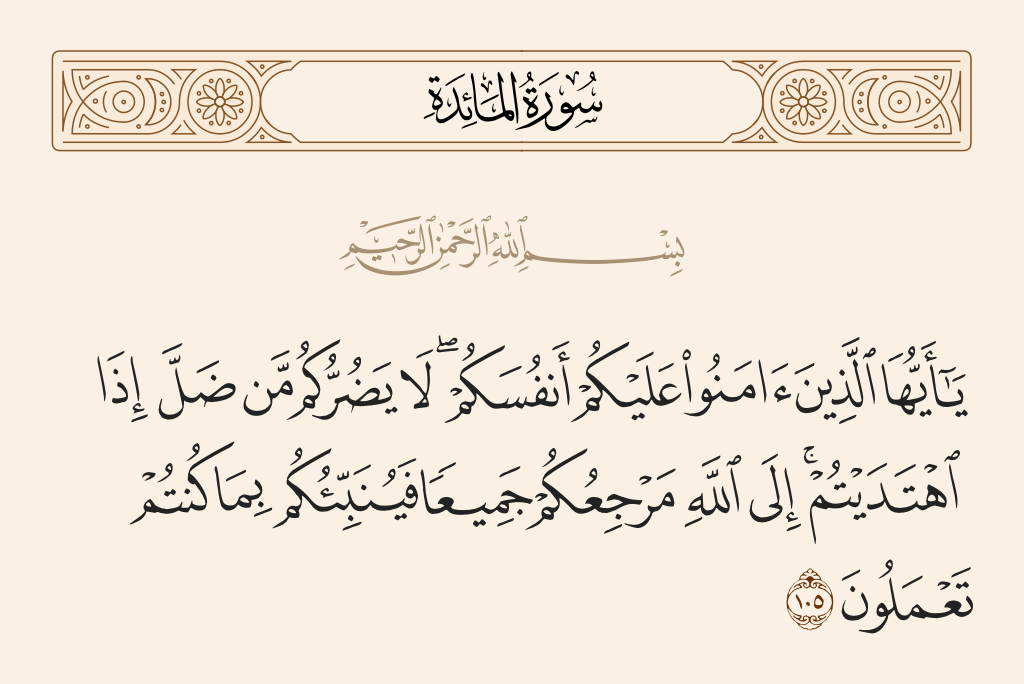 سُورَةُ المَائِدَةِ
بِسْمِ ٱللَّهِ ٱلرَّحْمَٰنِ ٱلرَّحِيمِ
يَـٰٓأَيُّهَا ٱلَّذِينَ ءَامَنُوا۟ عَلَيْكُمْ أَنفُسَكُمْ ۖ لَا يَضُرُّكُم مَّن ضَلَّ إِذَا
ٱهْتَدَيْتُمْ ۚ إِلَى ٱللَّهِ مَرْجِعُكُمْ جَمِيعًا فَيُنَبِّئُكُم بِمَا كُنتُمْ
تَعْمَلُونَ ١٠٥